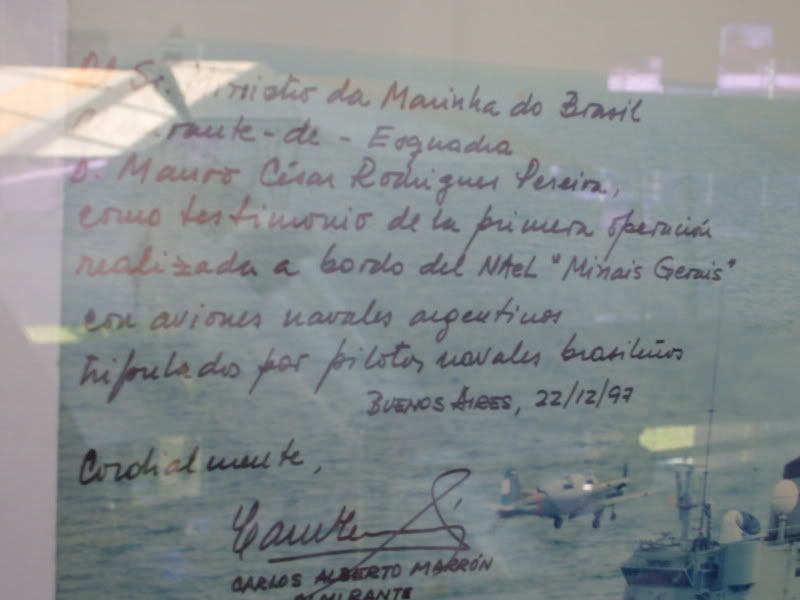 Al Sr. Ministro da Marinha do Brasil
-de-Esquadra
D. Mauro César Rodrigues Pereira,
como testimonio de la primera operación
realizada a bordo del NAeL "Minais Gerais"
con aviones navales argentinos
tripulados por pilotos navales brasileños
BUENOS AIRES, 22/12/97
Cordialmente,
CARLOS ALBERTO MARRÓN
ALMIRANTE